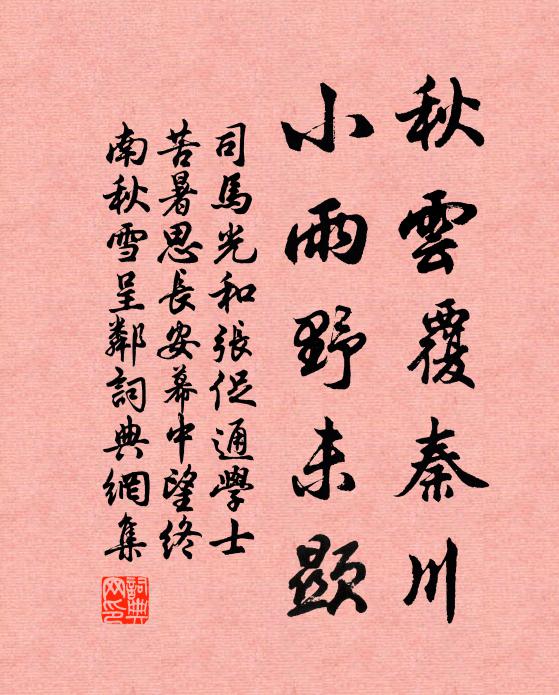 秋雲覆秦川
小雨野未顯
司馬光和張促通學士
苦暑思長安幕中望終
南秋雪呈鄰詞典網集
詞典網印